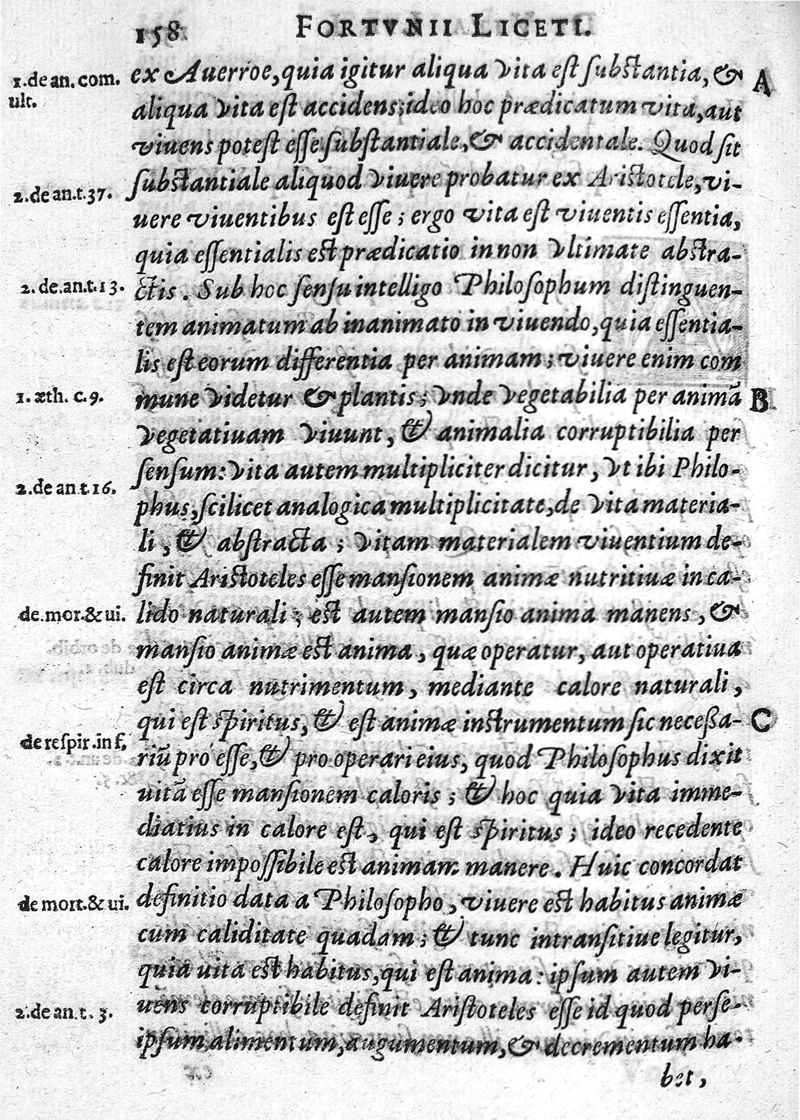 158 FORTVNII LICETI.
1.de an. com. ex Auerroe, quia igitur aliqua vita est substantia, & A
ult. aliqua vita est accidens; ideo hoc prædicatum vita, aut
viuens potest esse substantiale, & accidentale. Quod sit
2.de an.t.37. substantiale aliquod viuere probatur ex Aristotele, vi-
uere viuentibus est esse; ergo vita est viuentis essentia,
quia essentialis est prædicatio in non vltimate abstra-
2.de.an.t.13. ctis. Sub hoc sensu intelligo Philosophum distinguen-
tem animatum ab inanimato in viuendo, quia essentia-
lis est eorum differentia per animam; viuere enim com
1. æth. c.9. mune videtur & plantis; vnde vegetabilia per animā B
vegetatiuam viuunt, & animalia corruptibilia per
sensum: vita autem multipliciter dicitur, vt ibi Philo-
2.de an t 16. phus, scilicet analogica multiplicitate, de vita materia-
li, & abstracta; vitam materialem viuentium de-
finit Aristoteles esse mansionem animæ nutritiuæ in ca-
de.mor.& ui. lido naturali; est autem mansio anima manens, &
mansio animæ est anima, quæ operatur, aut operatiua
est circa nutrimentum, mediante calore naturali,
qui est spiritus, & est animæ instrumentum sic necessa- C
de respir.in f, riū pro esse, & pro operari eius, quod Philosophus dixit
uitā esse mansionem caloris; & hoc quia vita imme-
diatius in calore est, qui est spiritus; ideo recedente
calore impossibile est animam manere. Huic concordat
de mort.& ui. definitio data a Philosopho, viuere est habitus animæ
cum caliditate quadam; & tunc intransitiue legitur,
quia uita est habitus, qui est anima: ipsum autem vi-
2.de an.t. 3. uens corruptibile definit Aristoteles esse id quod per se-
ipsum, alimentum, augumentum, & decrementum ha-
bet,